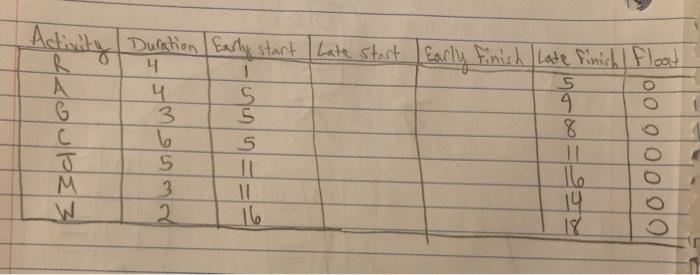 Activity Duration Early start Late start Early Finish Late Finish Float
R 4 1 5 0
A 4 5 9 0
G 3 5 8 0
C 6 5 11 0
J 5 11 16 0
M 3 11 14 0
W 2 16 18 0